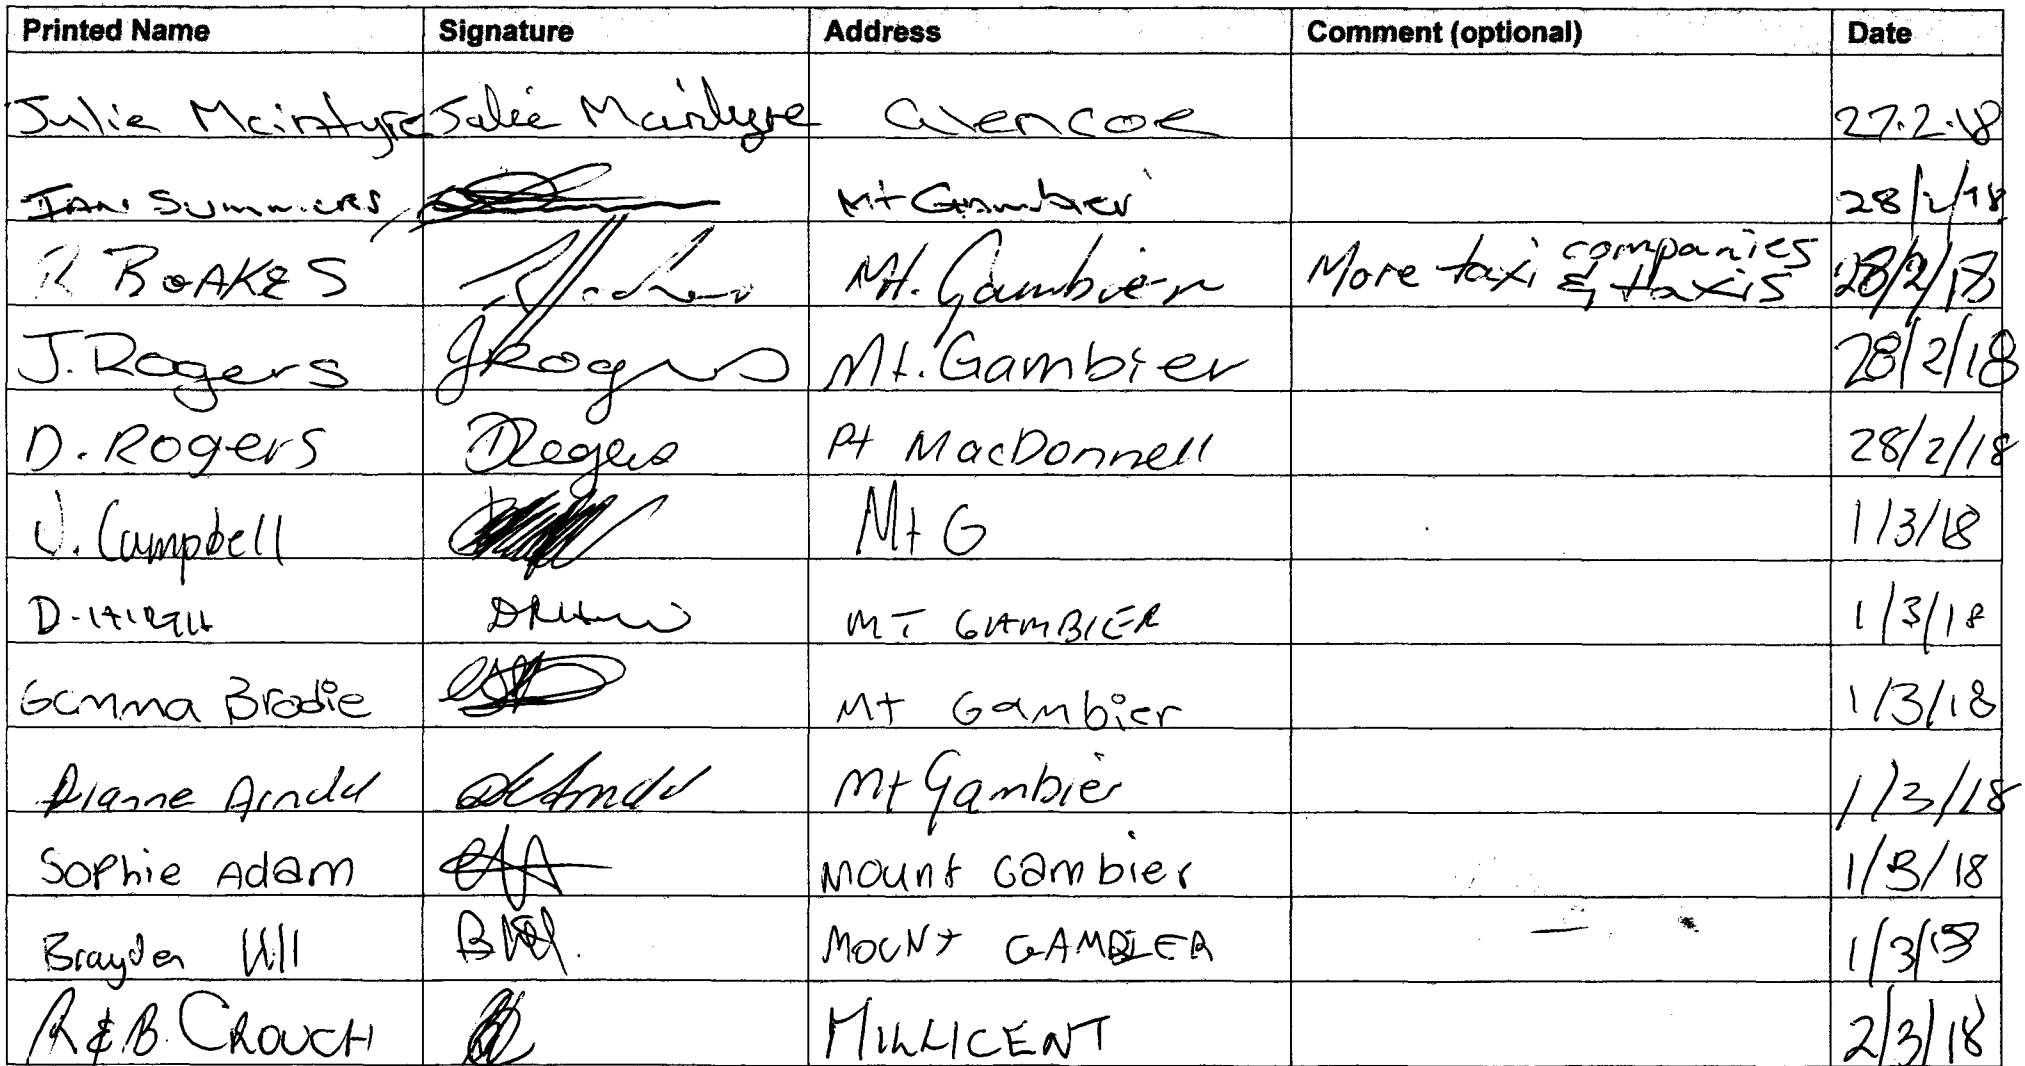 Printed Name Signature Address Comment (optional) Date
Julie Mcintyre Julie Mcintyre Glencoe 27.2.18
IAN SUMMERS Mt Gambier 28/2/18
R BOAKES Mt. Gambier More taxi companies & taxis 28/2/18
J. Rogers JRogers Mt. Gambier 28/2/18
D. Rogers DRogers Pt MacDonnell 28/2/18
J. Campbell Mt G 1/3/18
D. MT GAMBIER 1/3/18
Gemma Brodie Mt Gambier 1/3/18
Dianne Arnold Mt Gambier 1/3/18
Sophie Adam Mount Gambier 1/3/18
Brayden Hill MOUNT GAMBIER 1/3/18
R & B CROUCH MILLICENT 2/3/18